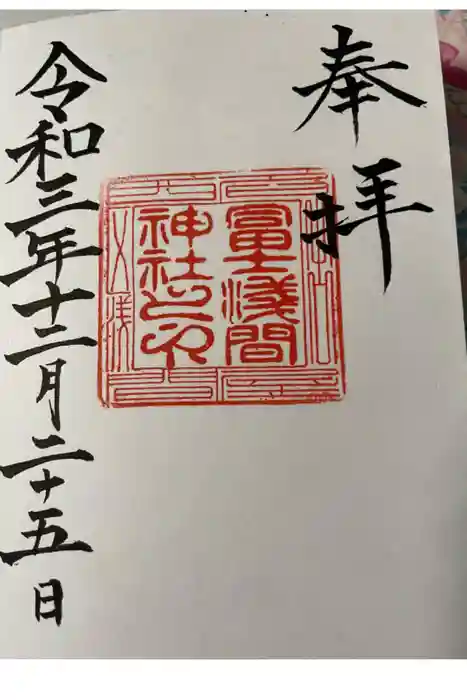 奉拝
冨士浅間
神社之印
令和三年十二月二十五日